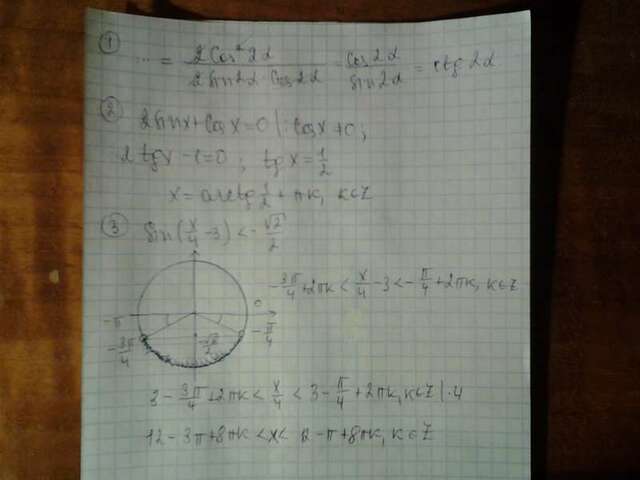 ① ... = 2Cos²2α / 2Sin2α·Cos2α = Cos2α / Sin2α = ctg2α
② 2Sinx+Cosx=0 |: Cosx≠0;
2tgx-1=0; tgx=1/2
x=arctg 1/2 + πk, k∈Z
③ Sin(x/4-3)<-√2/2
-3π/4+2πk < x/4-3 < -π/4+2πk, k∈Z
0
-π
-3π/4
-√2/2
-π/4
3-3π/4+2πk < x/4 < 3-π/4+2πk, k∈Z |·4
12-3π+8πk <x< 12-π+8πk, k∈Z